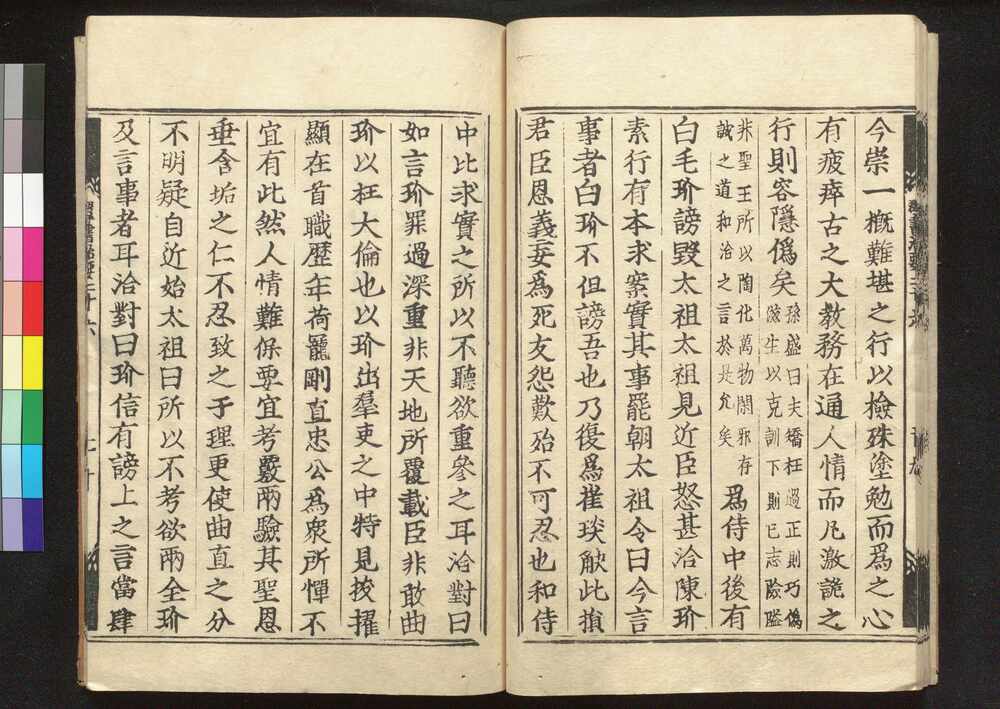 今崇一槪難堪之行以檢殊塗勉而爲之心
有疲瘁古之大敎務在通人情而凡激詭之
行則容隱僞矣孫盛曰夫矯枉過正則巧僞
滋生以克訓下則已志險隘
非聖王所以陶化萬物閑邪存
誠之道和洽之言於是允矣爲侍中後有
白毛玠謗毀太祖太祖見近臣怒甚洽陳玠
素行有本求案實其事罷朝太祖令曰今言
事者白玠不但謗吾也乃復爲崔琰觖此損
君臣恩義妄爲死友怨歎殆不可忍也和侍
中比求實之所以不聽欲重參之耳洽對曰
如言玠罪過深重非天地所覆載臣非敢曲
玠以枉大倫也以玠出羣吏之中特見拔擢
顯在首職歷年荷寵剛直忠公爲衆所憚不
宜有此然人情難保要宜考覈兩驗其聖恩
垂含垢之仁不忍致之于理更使曲直之分
不明疑自近始太祖曰所以不考欲兩全玠
及言事者耳洽對曰玠信有謗上之言當肆